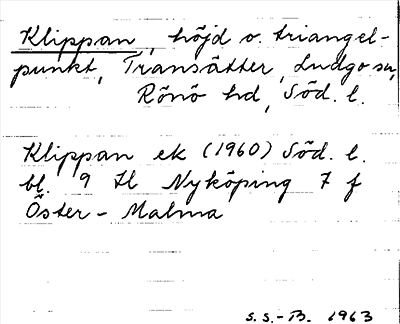 Klippan, höjd o. triangel-
punkt, Transätter, Ludgo sn,
Rönö hd, Söd. l.
Klippan ek (1960) Söd. l.
bl. 9 H Nyköping 7 f
Öster-Malma
S.S.-B. 1963